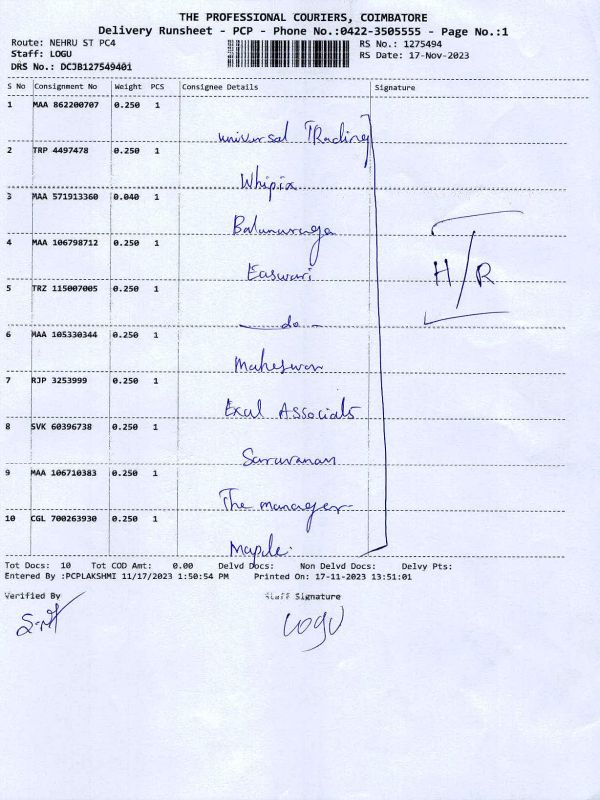 THE PROFESSIONAL COURIERS, COIMBATORE
Delivery Runsheet - PCP - Phone No.:0422-3505555 - Page No.:1
Route: NEHRU ST PC4 RS No.: 1275494
Staff: LOGU RS Date: 17-Nov-2023
DRS No.: DCJB127549401
S No Consignment No Weight PCS Consignee Details Signature
1 MAA 862200707 0.250 1
Universal Trading
2 TRP 4497478 0.250 1
Whipix
3 MAA 571913360 0.040 1
Balamuruga
4 MAA 106798712 0.250 1
Easwari
H/R
5 TRZ 115007005 0.250 1
— do —
6 MAA 105330344 0.250 1
Maheswari
7 RJP 3253999 0.250 1
Excel Associats
8 SVK 60396738 0.250 1
Saravanan
9 MAA 106710383 0.250 1
The manager
10 CGL 700263930 0.250 1
Maple.
Tot Docs: 10 Tot COD Amt: 0.00 Delvd Docs: Non Delvd Docs: Delvy Pts:
Entered By :PCPLAKSHMI 11/17/2023 1:50:54 PM Printed On: 17-11-2023 13:51:01
Verified By Staff Signature
LOGU